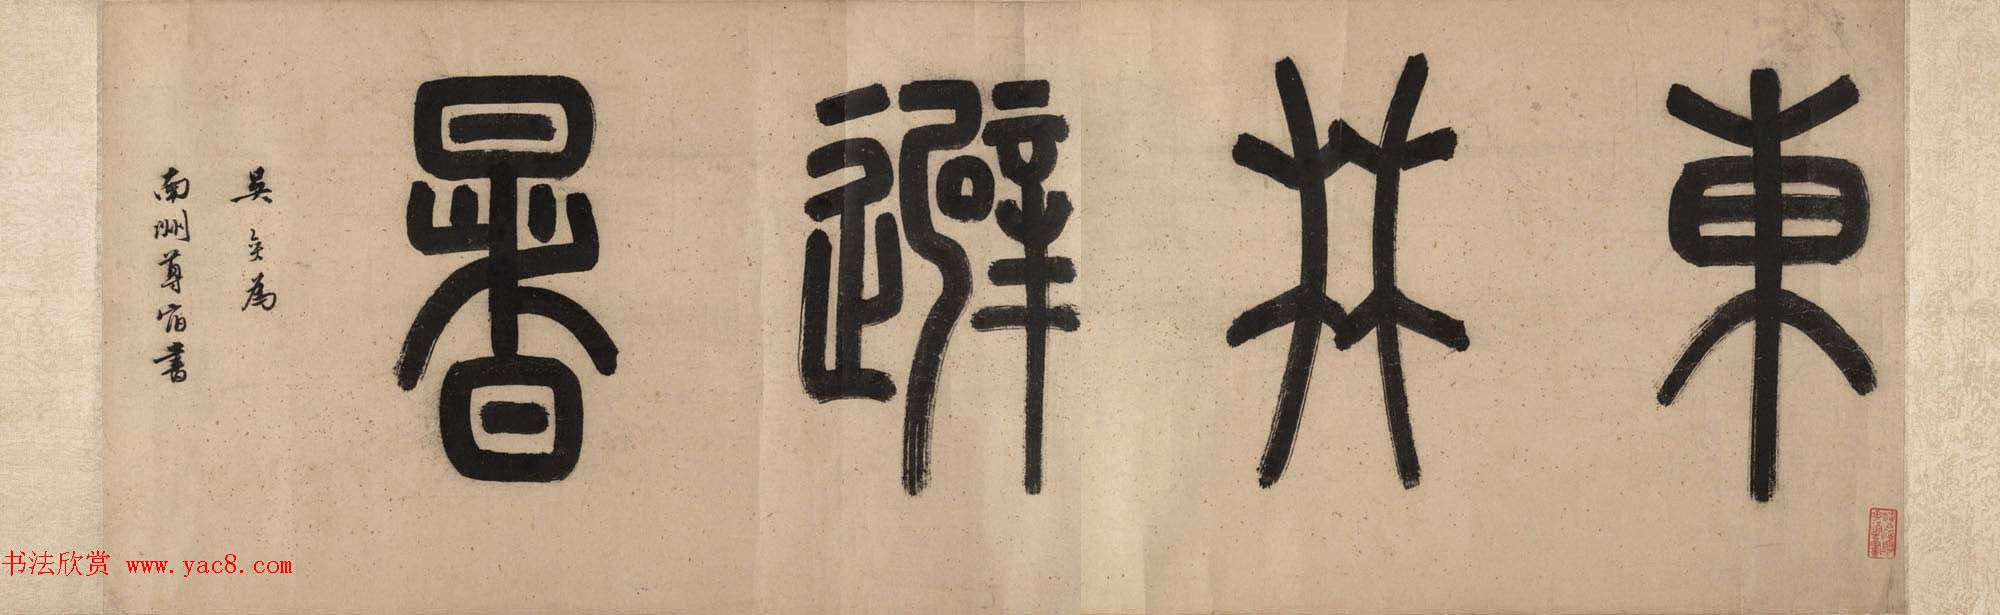 東林避暑
吳奕為
南洲尊宿書
书法欣赏 www.yac8.com